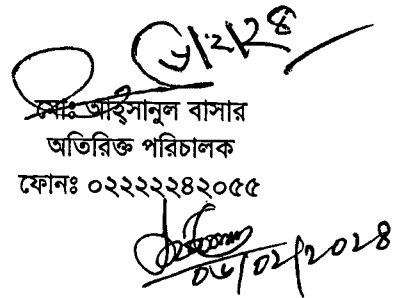 ৬/২/২৪
মোঃ আহসানুল বাসার
অতিরিক্ত পরিচালক
ফোনঃ ০২২২২২৪২০৫৫
০৬/০২/২০২৪